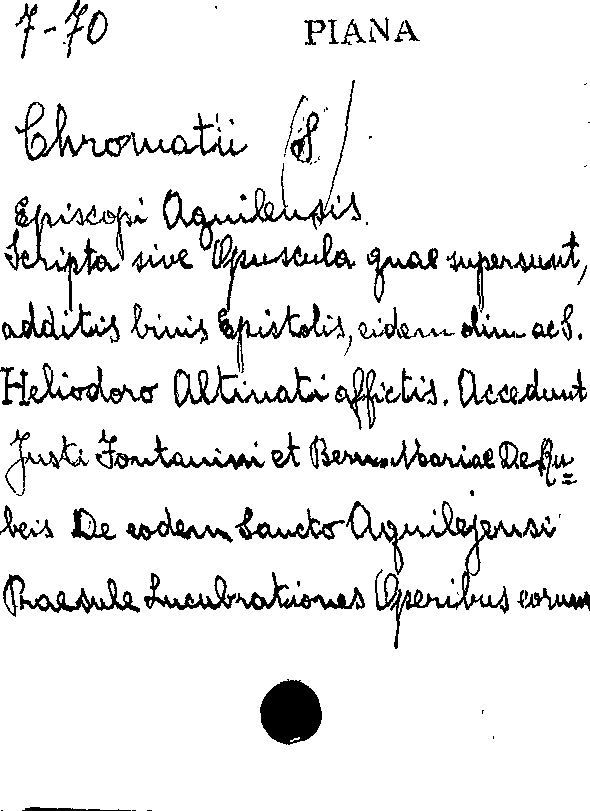 7-70 PIANA
Chromatii (S)
Episcopi Aquilensis.
Scripta sive Opuscula quae supersunt,
additis binis Epistolis, eidem olim ac S.
Heliodoro Altinati affictis. Accedunt
Justi Fontanini et Bern. Mariae De Ru=
beis De eodem Sancto Aquilejensi
Praesule Lucubrationes Operibus eorum